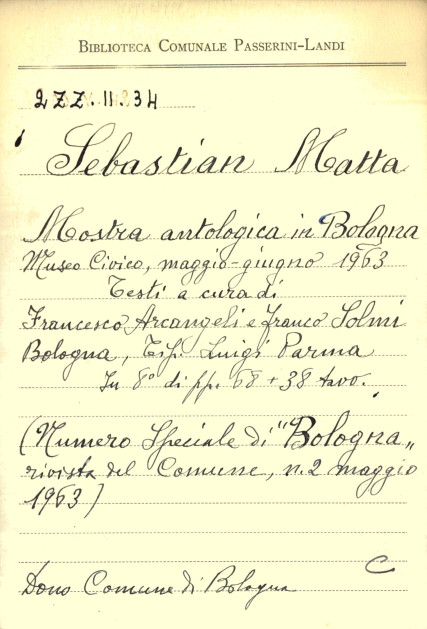 BIBLIOTECA COMUNALE PASSERINI-LANDI
2 ZZ. II. 34
Sebastian Matta
Mostra antologica in Bologna
Museo Civico, maggio-giugno 1963
Testi a cura di
Francesco Arcangeli e Franco Solmi
Bologna, Tip. Luigi Parma
In 8º di pp. 68 + 38 tavo.
(Numero Speciale di "Bologna„
rivista del Comune, n. 2 maggio
1963)
C
Dono Comune di Bologna